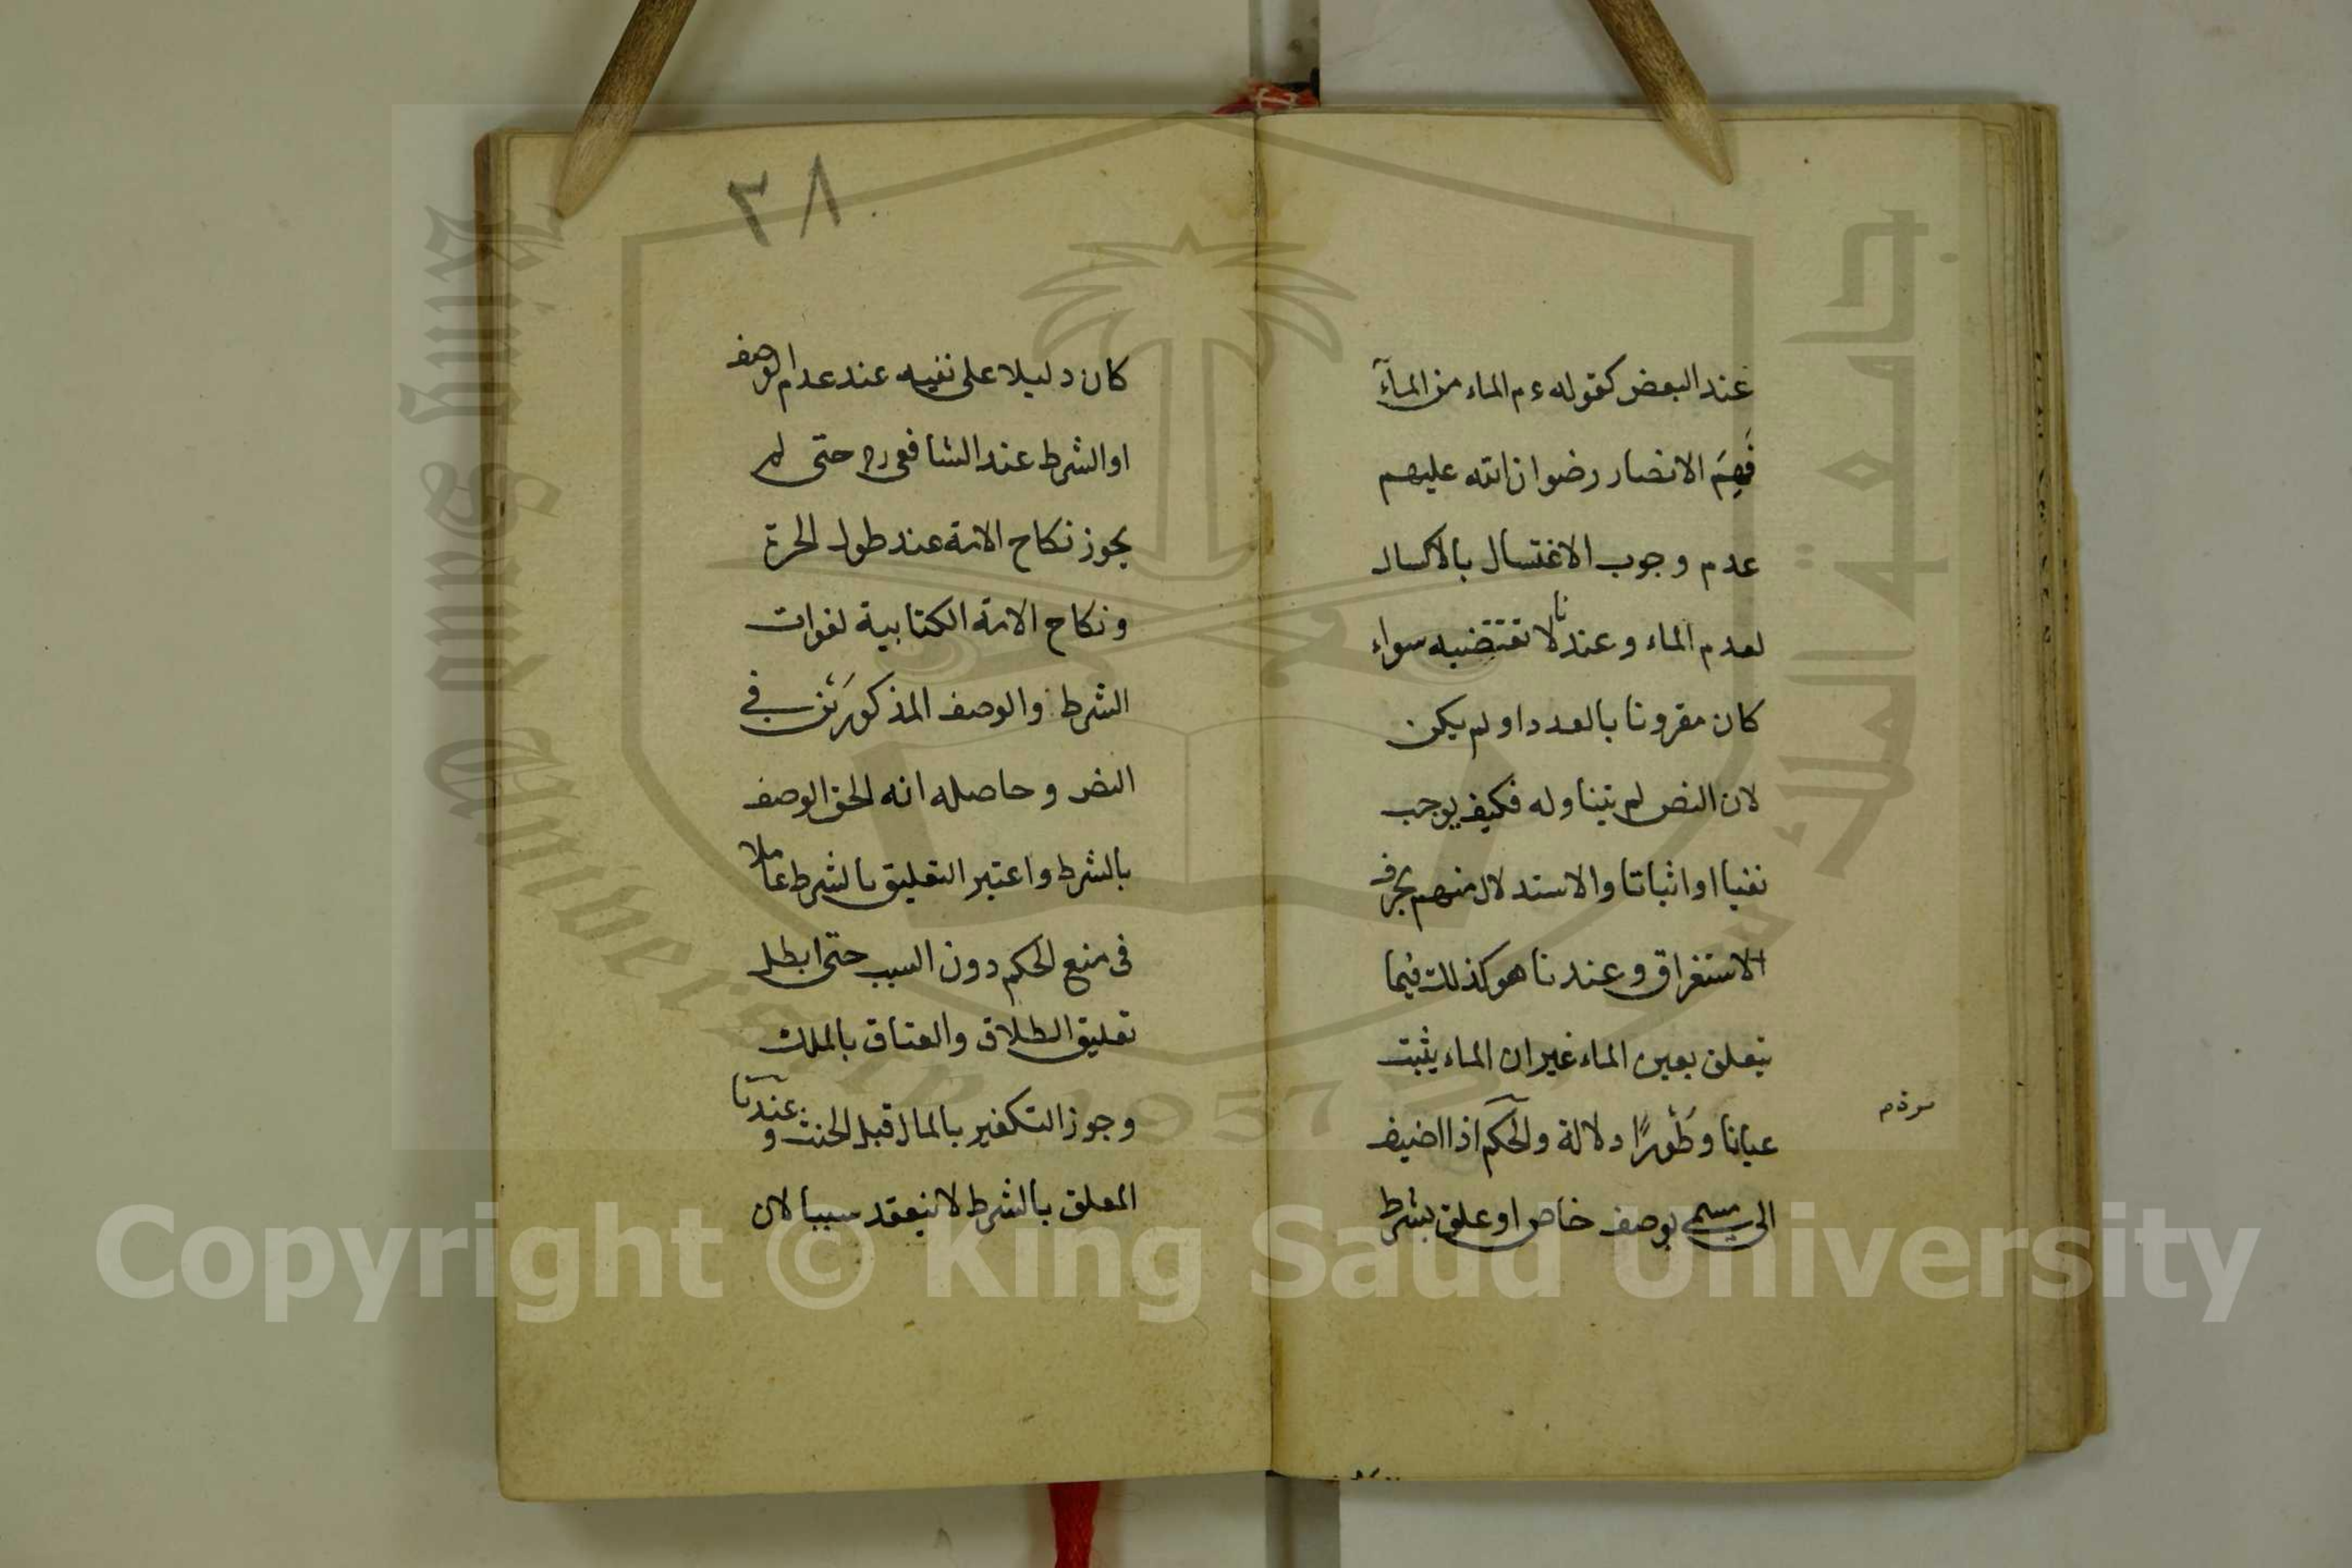 عند البعض كقوله ء م الماء من المآء
فَهِمَ الانصار رضوان الله عليهم
عدم وجوب الاغتسال بالاكسال
لعدم الماء وعندنا لا تقتضيه سواء
كان مقرونا بالعدد او لم يكن
لان النص لم يتناوله فكيف يوجب
نفيا او اثباتا والاستدلال منهم بحرف
الاستغراق وعندنا هو كذلك فيما
يتعلق بعين الماء غير ان الماء يثبت
عيانا وطَوْرًا دلالة والحكم اذا اضيف
مرة م
الى مسمى بوصف خاص او علق بشرط
٣٨
كان دليلا على نفيه عند عدم الوصف
او الشرط عند الشافعى رح حتى لم
يجوز نكاح الامة عند طول الحرة
ونكاح الامة الكتابية لفوات
الشرط والوصف المذكورَيْن في
النص وحاصله انه الحق الوصف
بالشرط واعتبر التعليق بالشرط عاملا
فى منع الحكم دون السبب حتى ابطل
تعليق الطلاق والعتاق بالملك
وجوز التكفير بالمال قبل الحنث وعندنا
المعلق بالشرط لا ينعقد سببا لان
King Saud University
1957
جامعة الملك سعود
Copyright © King Saud University